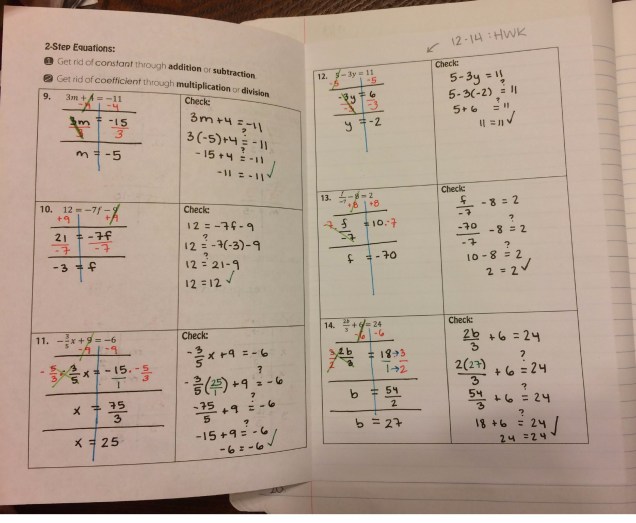 2-Step Equations:
1 Get rid of constant through addition or subtraction
2 Get rid of coefficient through multiplication or division
9. 3m + 4 = -11
-4 -4
3m = -15
3 3
m = -5
Check:
3m + 4 = -11
3(-5)+4 ?= -11
-15 + 4 ?= -11
-11 = -11 ✓
10. 12 = -7f - 9
+9 +9
21 = -7f
-7 -7
-3 = f
Check:
12 = -7f - 9
12 ?= -7(-3) - 9
12 ?= 21 - 9
12 = 12 ✓
11. -3/5 x + 9 = -6
-9 -9
-5/3 · -3/5 x = -15/1 · -5/3
x = 75/3
x = 25
Check:
-3/5 x + 9 = -6
-3/5 (25/1) + 9 ?= -6
-75/5 + 9 ?= -6
-15 + 9 ?= -6
-6 = -6 ✓
12-14 : HWK
12. 5 - 3y = 11
-5 -5
-3y = 6
-3 -3
y = -2
Check:
5 - 3y = 11
5 - 3(-2) ?= 11
5 + 6 ?= 11
11 = 11 ✓
13. f/-7 - 8 = 2
+8 +8
-7 · f/-7 = 10 · -7
f = -70
Check:
f/-7 - 8 = 2
-70/-7 - 8 ?= 2
10 - 8 ?= 2
2 = 2 ✓
14. 2b/3 + 6 = 24
-6 -6
3/2 · 2b/3 = 18/1 → 3/2
b = 54/2
b = 27
Check:
2b/3 + 6 = 24
2(27)/3 + 6 ?= 24
54/3 + 6 ?= 24
18 + 6 ?= 24
24 = 24 ✓